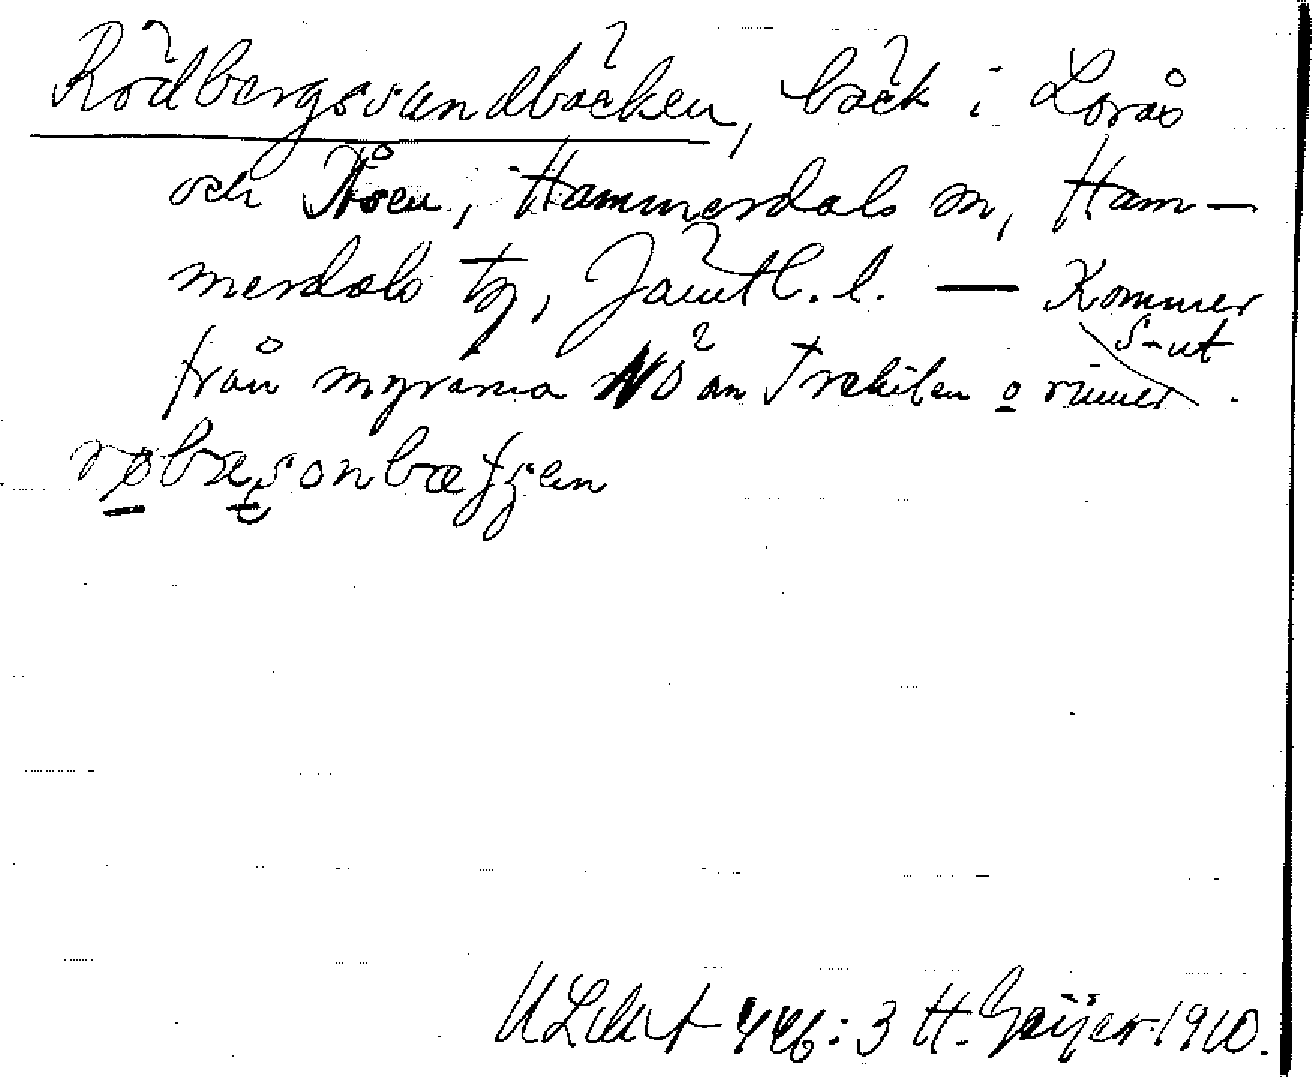 Rödbergssandbäcken, bäck i Lorås
och Åsen, Hammerdals sn, Ham-
merdals tg, Jämtl. l. — Kommer
från myrarna NÖ an o rinner S-ut.
røbæsanbæƒʒen
ULMA 446:3 H. Geijer 1910.